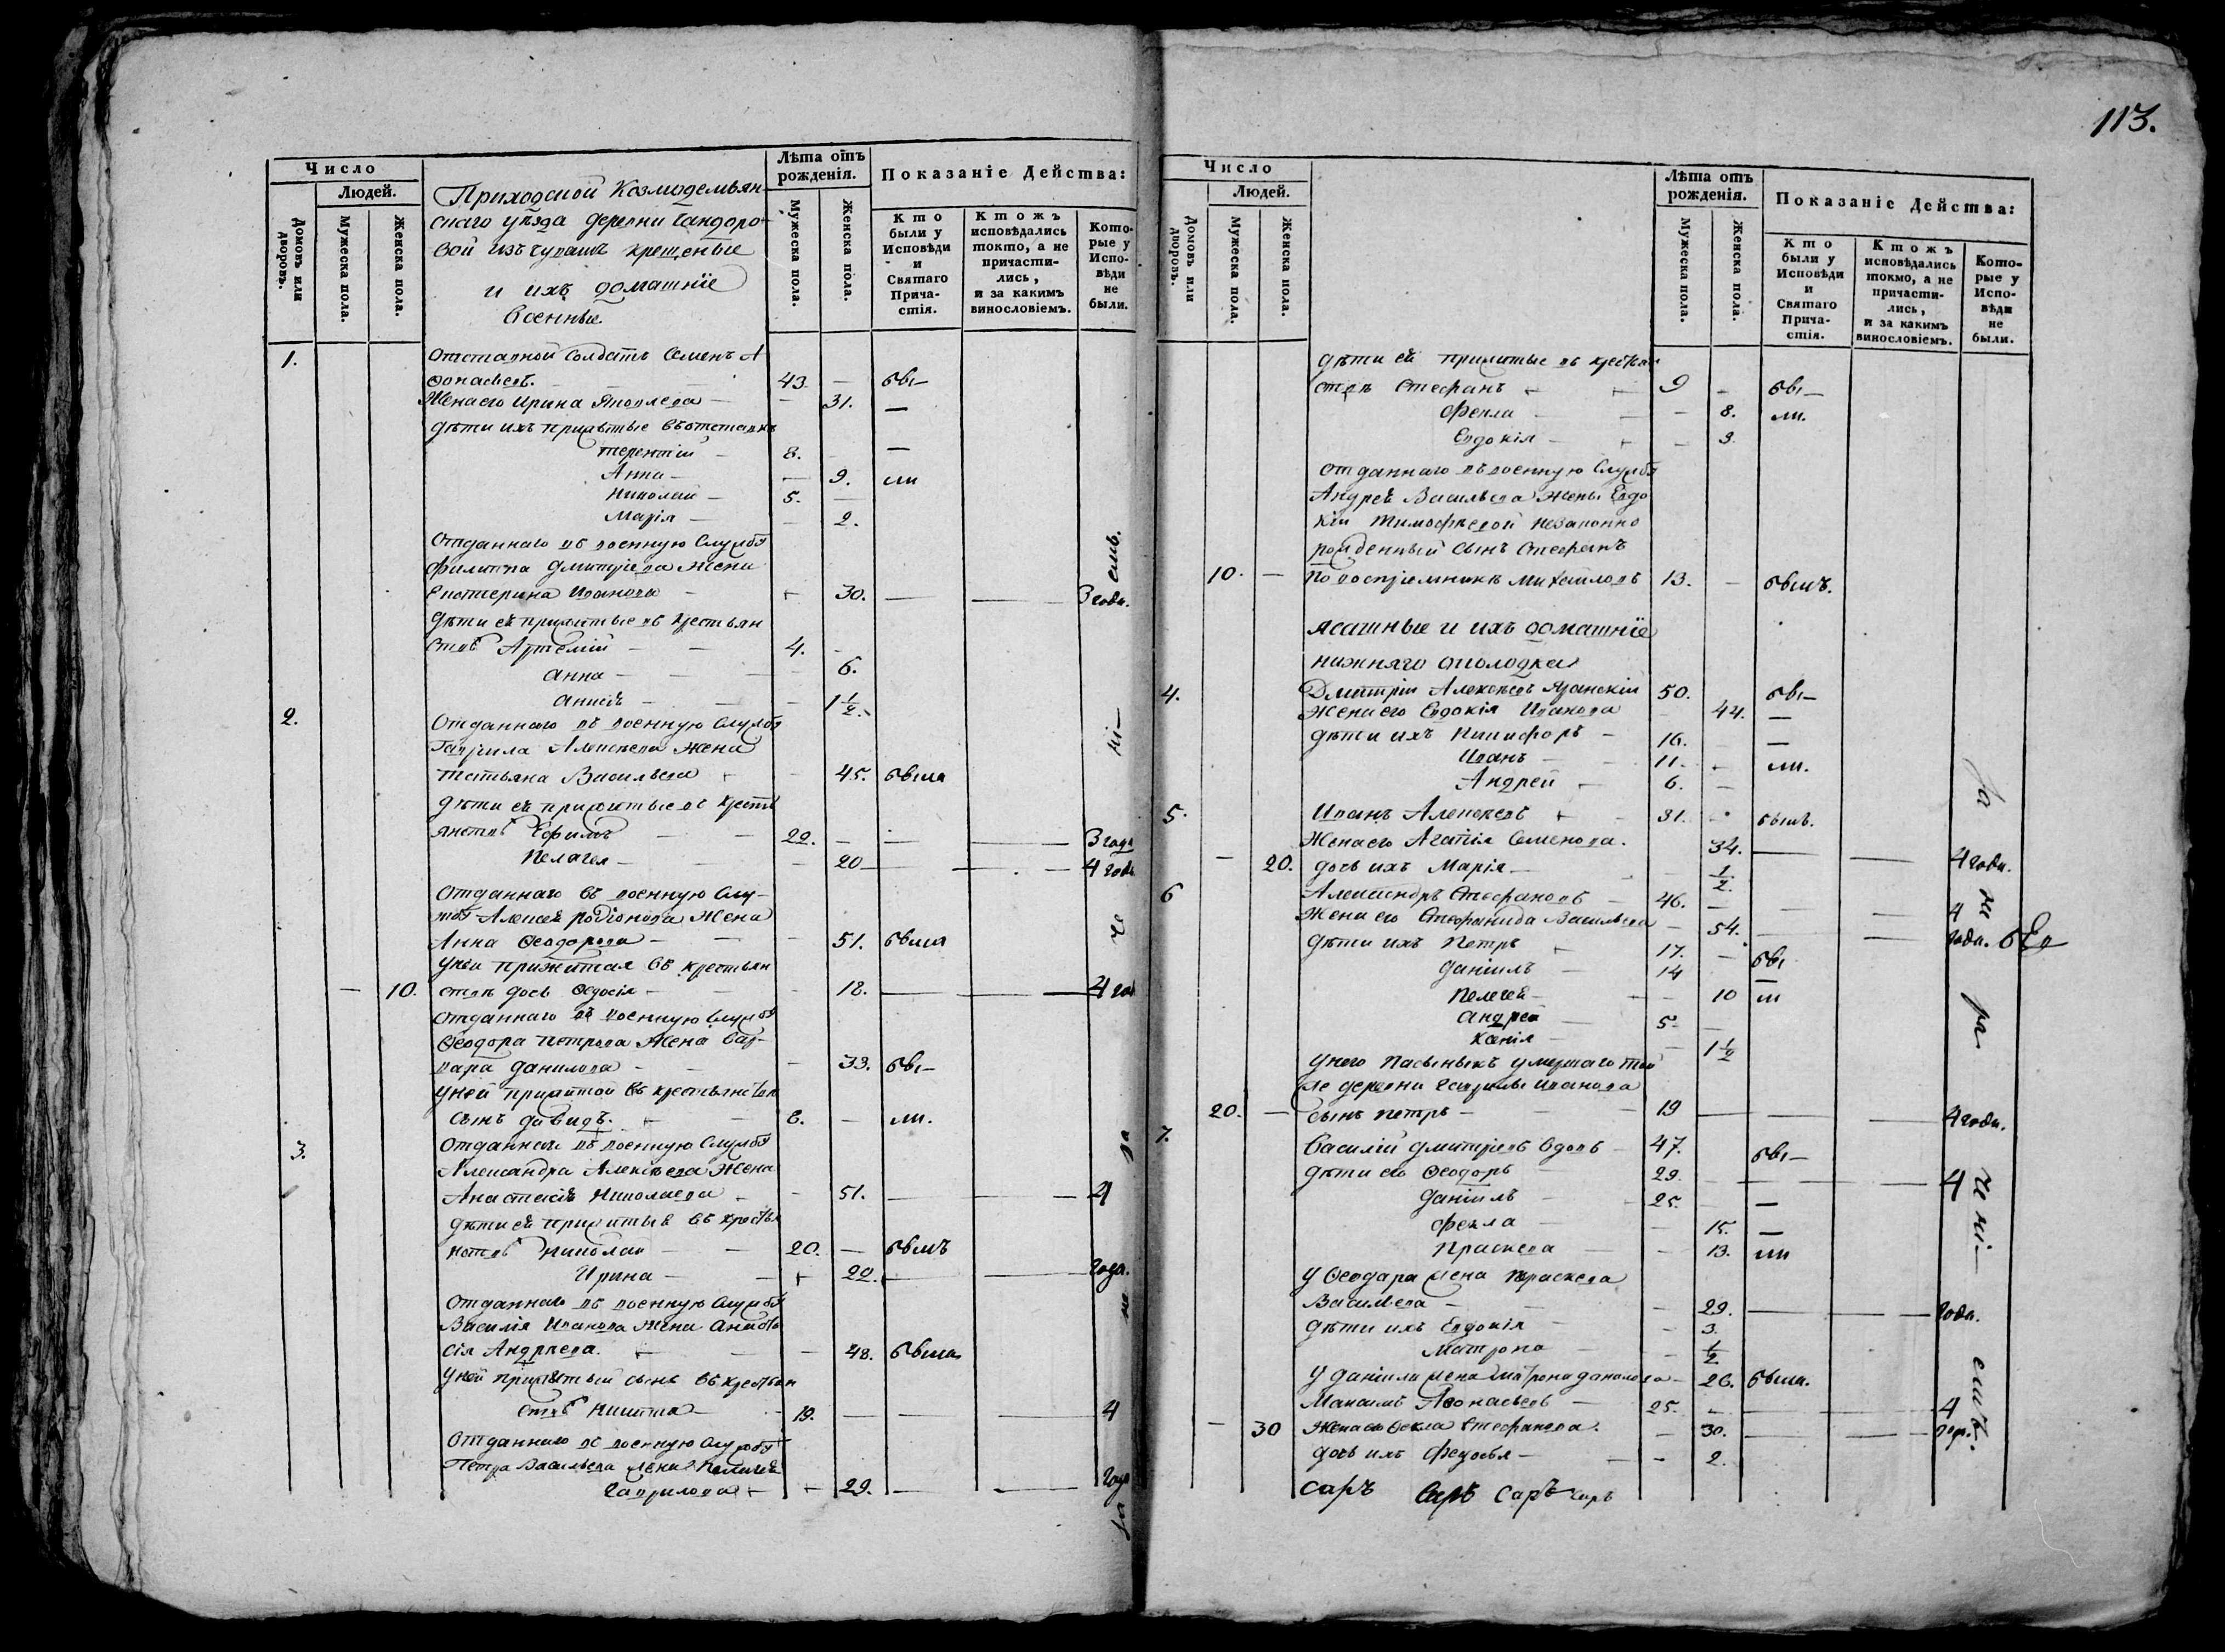 Число
Людей.
Домовъ или дворовъ.
Мужеска пола.
Женска пола.
Приходской Козмодемьян
скаго уѣзда деревни Сандоро-
вой изъ чувашъ крещеные
и ихъ домашніе
Военные.
Лѣта отъ рожденія.
Мужеска пола.
Женска пола.
Показаніе Дѣйства:
Кто были у Исповѣди и Святаго Причастія.
Ктожъ исповѣдались токмо, а не причастились, и за какимъ винословіемъ.
Которые у Исповѣди не были.
1. Отставной солдатъ Семенъ А
ѳонасьевъ. 43. — бы—
Жена его Ирина Яковлева — — 31. —
дѣти ихъ прижитые въ отставкѣ
терентій — 8. —
Анна — — 9. ли
Николай — 5. —
Марія — — 2.
Отданнаго въ военную службу
Филиппа Дмитріева жена
Екатерина Иванова — 30. — — 3 года.
дѣти ей прижитые въ крестьян
ствѣ Артемій — 4. —
Анна — — 6.
Анисія — — 1 1/2.
2. Отданнаго въ военную службу
Гаврила Алексѣева жена
Татьяна Васильева — 45. была
дѣти ей прижитые въ кресть
янствѣ Ефимъ — 22. — — — 3 года
Пелагея — — 20 — — 4 года
Отданнаго въ военную слу-
жбу Алексѣя Родіонова жена
Анна Ѳеодорова — — 51. была
у ней прижитая въ крестьян
— 10. ствѣ дочь Ѳедосія — — 18. — — 4 го
Отданнаго въ военную службу
Ѳеодора Петрова жена Вар-
вара Данилова — — 33. бы—
у ней прижитой въ крестьянствѣ
сынъ Давидъ. 8. — ли.
3. Отданнаго въ военную службу
Александра Алексѣева жена
Анастасія Николаева — 51. — — 4
дѣти ей прижитыя въ крестья
нствѣ Николай — 20. — былъ
Ирина — — 22. — — года.
Отданнаго въ военную службу
Василія Иванова жена Анаста
сія Андреева. — 48. была
у ней прижитый сынъ въ крестьян
ствѣ Никита — 19. — — 4
Отданнаго въ военную службу
Петра Васильева жена Пелагея
Гаврилова — 29. — — года
113.
Число
Людей.
Домовъ или дворовъ.
Мужеска пола.
Женска пола.
Лѣта отъ рожденія.
Мужеска пола.
Женска пола.
Показаніе Дѣйства:
Кто были у Исповѣди и Святаго Причастія.
Ктожъ исповѣдались токмо, а не причастились, и за какимъ винословіемъ.
Которые у Исповѣди не были.
дѣти ей прижитые въ крестьян
ствѣ Стефанъ — 9 — бы—
Фекла — — 8. ли.
Евдокія — — 3.
Отданнаго въ военную службу
Андрея Васильева жены Евдо
кіи Тимофеевой незаконно
рожденный сынъ Стефанъ
10. — по воспріемникѣ Михайловъ 13. — былъ.
Ясашные и ихъ домашніе
нижняго околодка
4. Дмитрій Алексѣевъ 50. бы—
Жена его Евдокія Иванова — 44. —
дѣти ихъ Никифоръ — 16. — —
Иванъ — 11. — ли.
Андрей — 6. —
5. Иванъ Алексѣевъ — 31. — былъ.
Жена его Агафія Семенова. 34. — — 4 года.
— 20. дочь ихъ Марія — — 1/2.
6 Александръ Стефановъ — 46. — — — 4
Жена его Стефанида Васильева — 54. — — года.
дѣти ихъ Петръ — 17. — бы
Даніилъ — 14 —
Пелагея — — 10 ли
Андрей — 5. —
Ксенія — — 1 1/2
у него пасынокъ умершаго той
же деревни Гаврилы Иванова
20. — сынъ Петръ — — 19 — — 4 года.
7. Василій Дмитріевъ вдовъ — 47. бы—
дѣти его Ѳеодоръ — 29. — — — 4
Даніилъ — 25. — —
Фекла — — 15. —
Праскева — — 13. ли
у Ѳеодора жена Праскева
Васильева — — 29. — — года.
дѣти ихъ Евдокія — — 3.
Матрона — — 1/2
у Даніила жена Матрона Данилова — 26. была.
Максимъ Аѳонасьевъ — 25. — — 4
— 30 Жена его Ѳекла Стефанова. — 30. — — года.
дочь ихъ Федосья — — 2.
саръ саръ саръ саръ